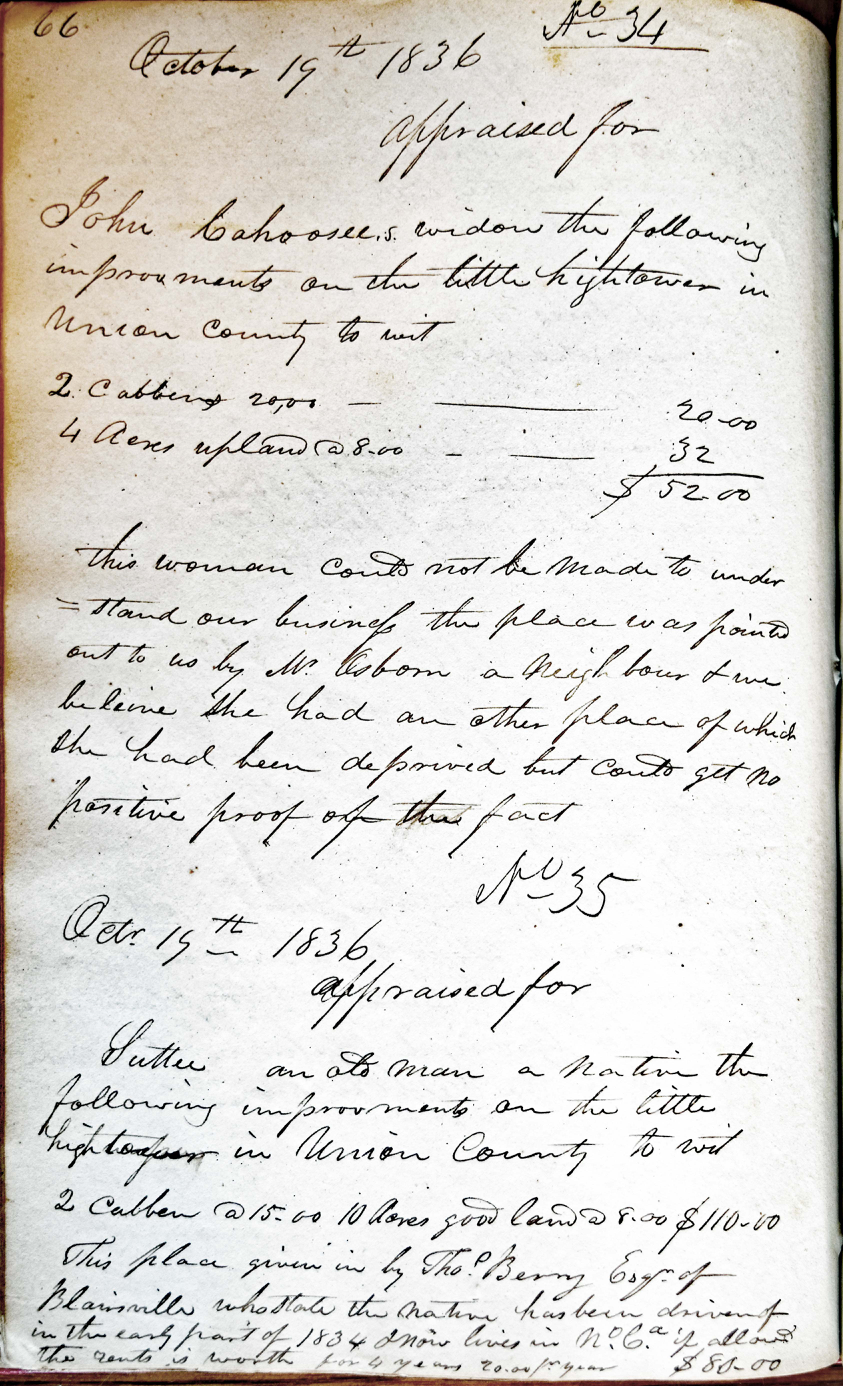 66
No 34
October 19th 1836
appraised for
John Cahoosee,s. widow the following
improvments on the little hightower in
Union County to wit
2 Cabbens 20,00 — — 20-00
4 Acres upland @ 8-00 - — 32
$ 52-00
this woman could not be made to under
=stand our business the place was pointed
out to us by Mr Osborn a Neighbour & we
beleive she had an other place of which
she had been deprived but could get no
positive proof of the fact
No 35
Octr. 19th 1836
appraised for
Suttee an old man a native the
following improvments on the little
hightower in Union County to wit
2 Cabben @ 15-00 10 Acres good land @ 8-00 $110-00
This place given in by Thos. Berry Esqr of
Blairsville who state the native has been driven of
in the early part of 1834 & now lives in No. Ca if allowd
the rents is worth for 4 years 20.00 pr year $80-00